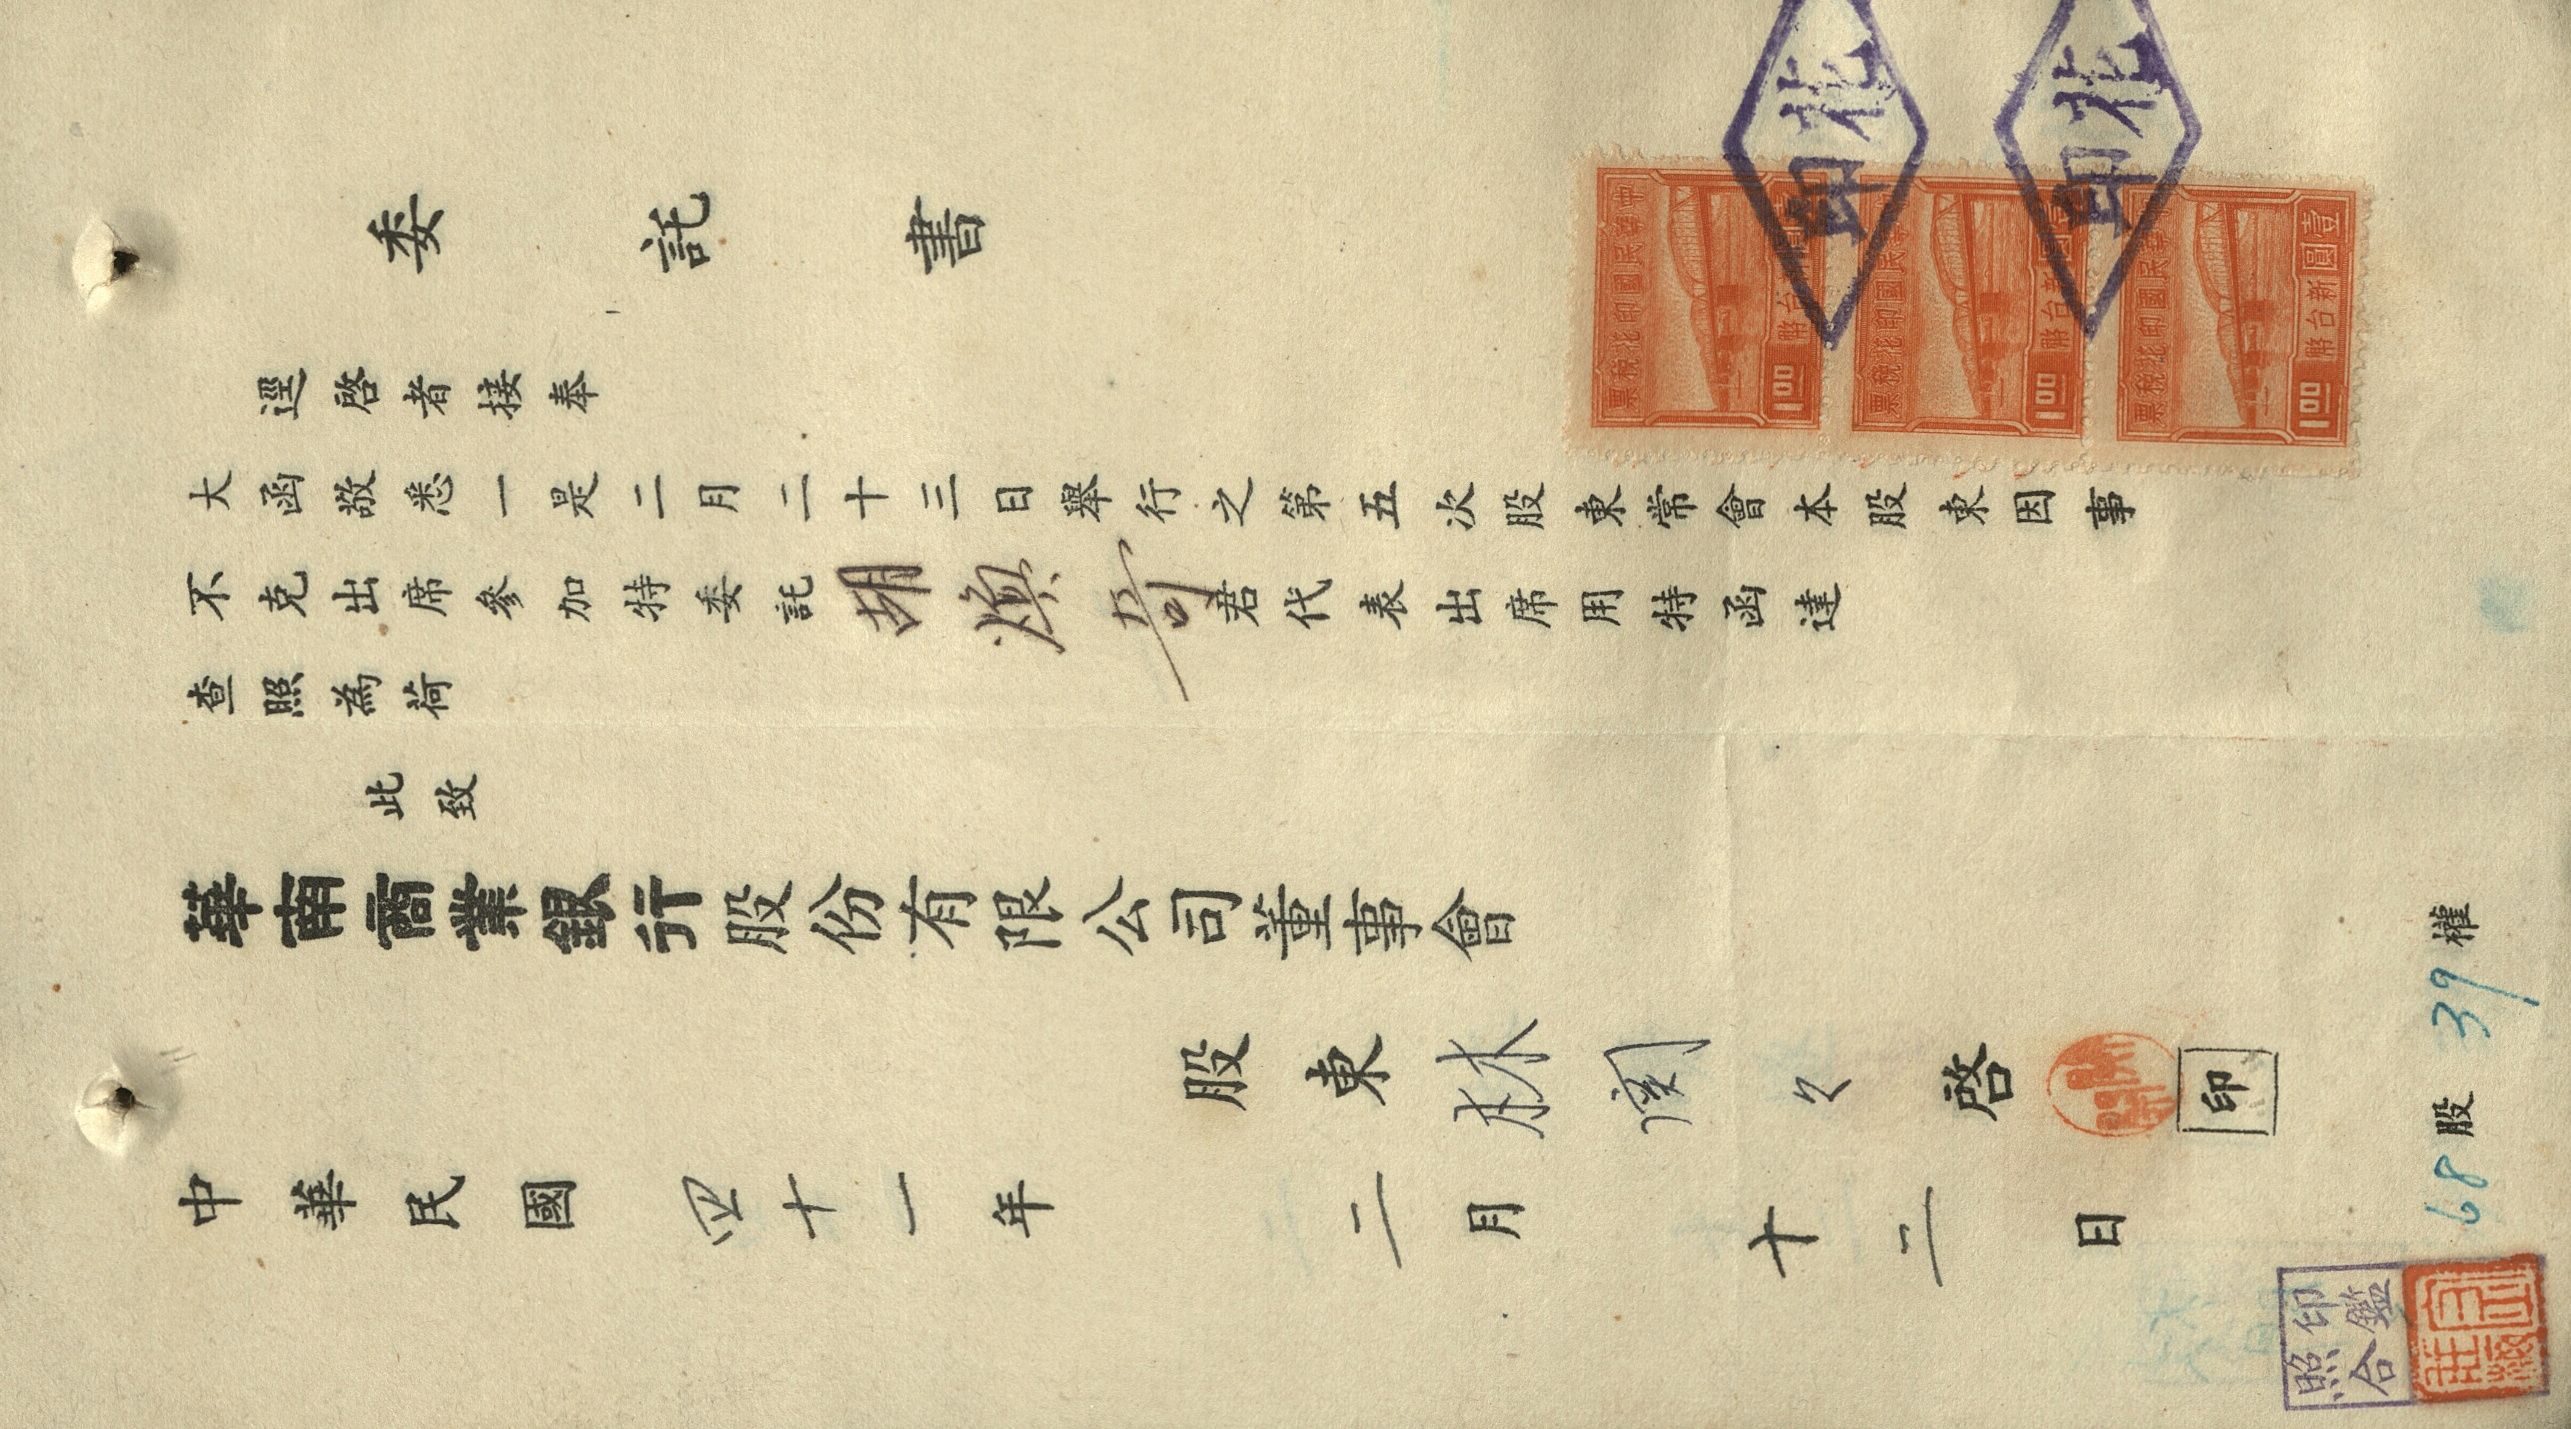 委託書
逕啓者接奉
大函敬悉一是二月二十三日舉行之第五次股東常會本股東因事
不克出席參加特委託胡煥奇君代表出席用特函達
查照為荷
此致
華南商業銀行股份有限公司董事會
股東林関々啓
印
中華民國四十一年二月十二日
68股39權
印鑑
照合
中華民國印花稅票
新台幣壹圓
1.00
中華民國印花稅票
新台幣壹圓
1.00
中華民國印花稅票
新台幣壹圓
1.00
花印
花印